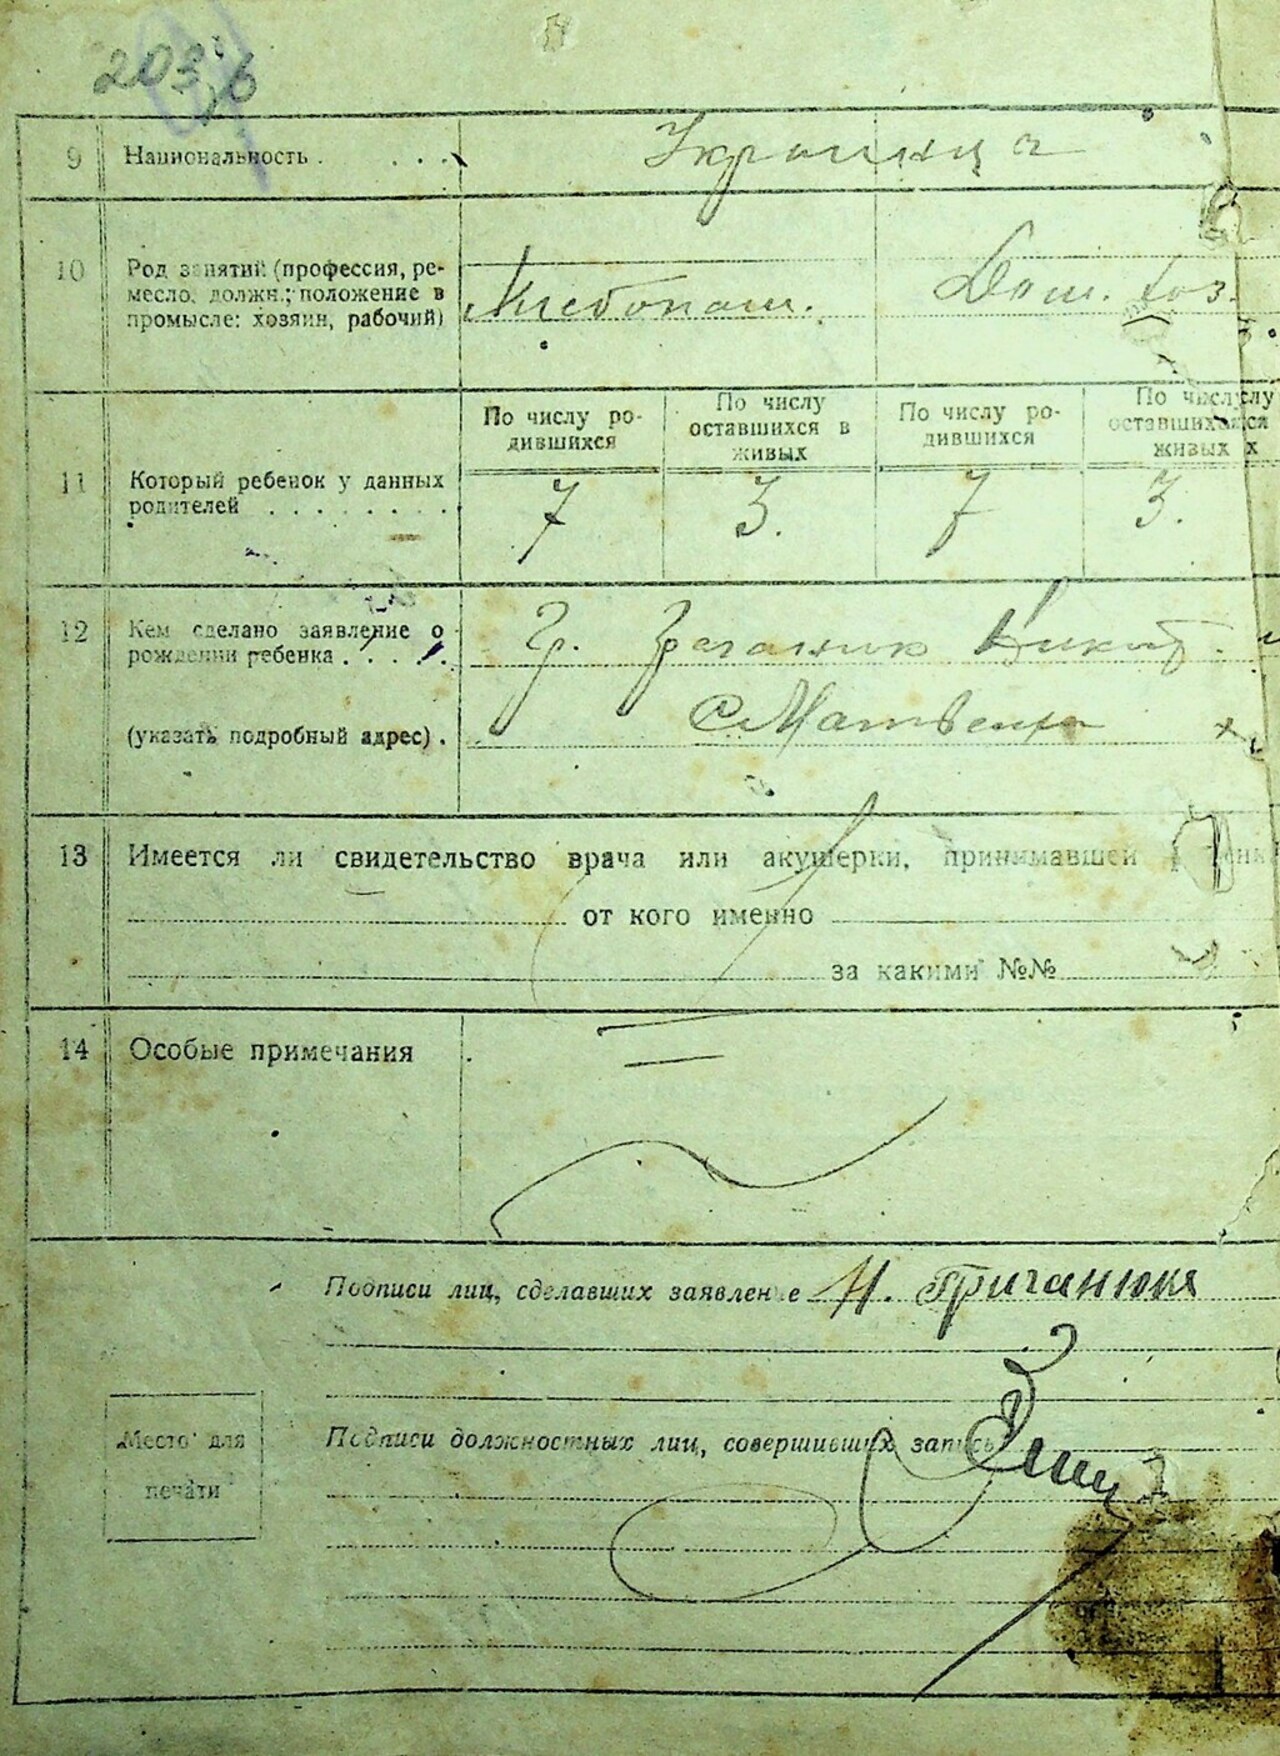 203 б
9 Национальность . . . . Украинца
10 Род занятий (профессия, ре-
месло, должн.; положение в
промысле: хозяин, рабочий)
Хлебопаш. Дом. хоз.
11 Который ребенок у данных
родителей . . . . . . . .
По числу ро-
дившихся
По числу
оставшихся в
живых
По числу ро-
дившихся
По числу
оставшихся
живых
7 3. 7 3.
12 Кем сделано заявление о
рождении ребенка . . . . .
Гр. Никит.
(указать подробный адрес) .
13 Имеется ли свидетельство врача или акушерки, принимавшей
от кого именно
за какими №№
14 Особые примечания
Подписи лиц, сделавших заявление Н. Григанюкя
Подписи должностных лиц, совершивших запись
Место для
печати